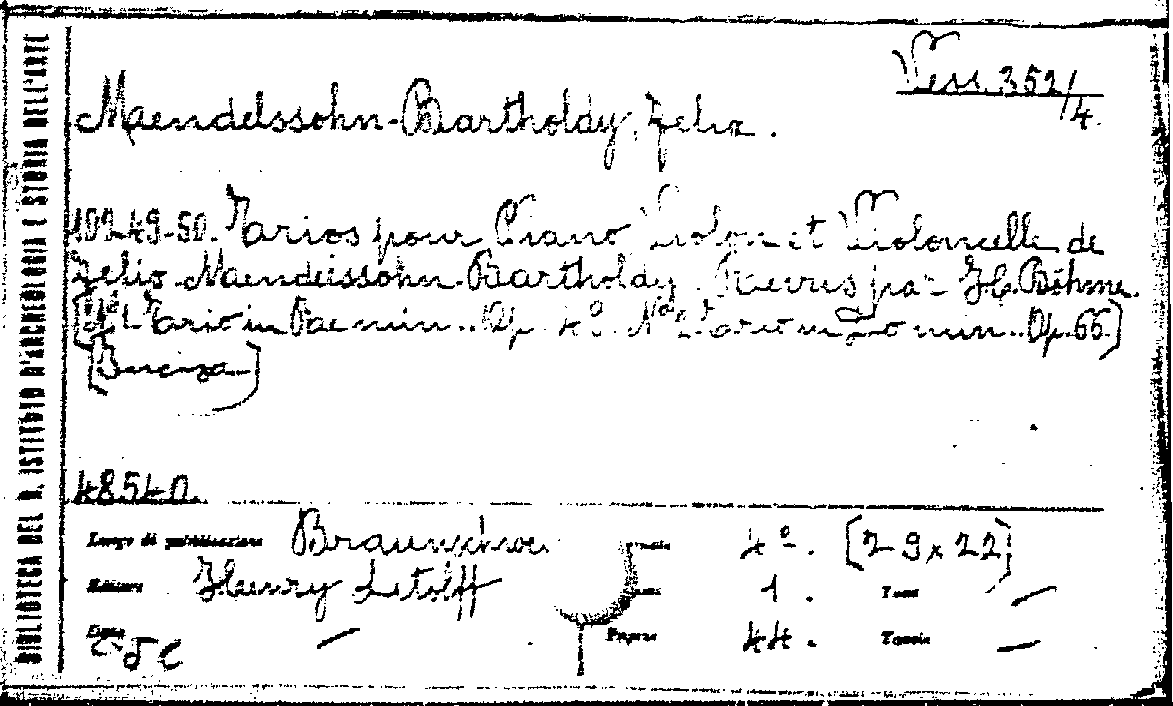 BIBLIOTECA DEL R. ISTITUTO D'ARCHEOLOGIA E STORIA DELL'ARTE
Vess. 352/4.
Maendelssohn-Bartholdy, Felix.
Trios pour Piano Violon et Violoncelle de
Felix Maendelssohn-Bartholdy. Revus par Böhme.
min.. Op. 49. min.. Op. 66.]
48540.
Luogo di pubblicazione Braunschwei
4º. [29x22]
Editore Henry Litolff
1. Tomi —
Data —
Pagine 44. Tavole —